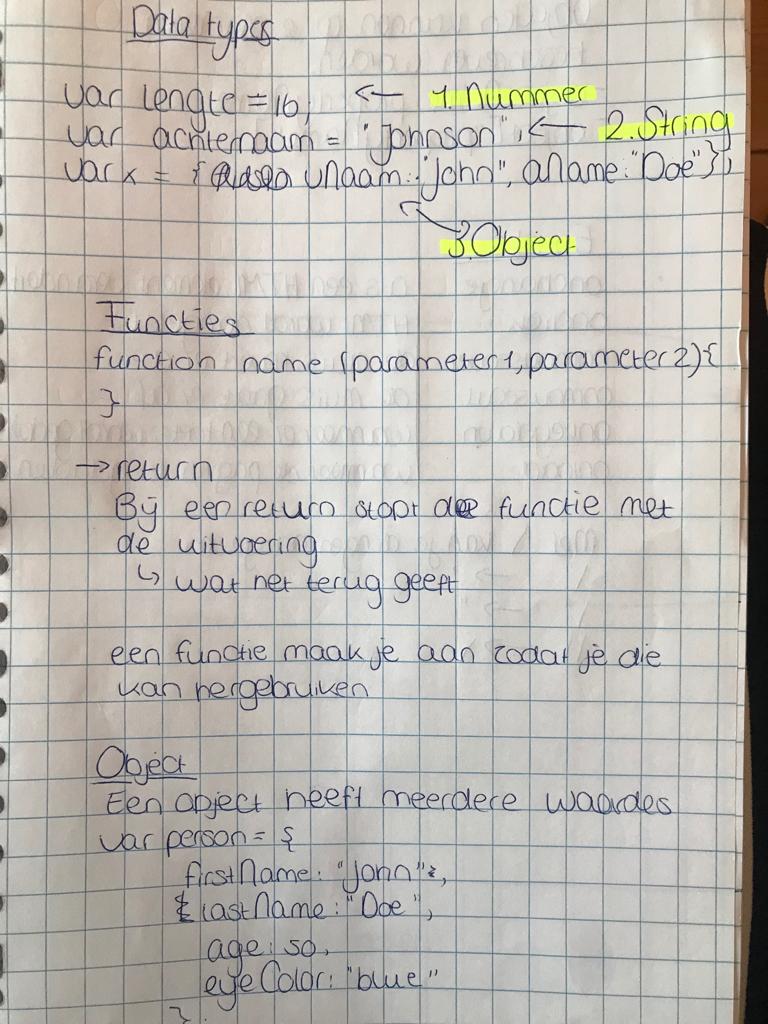 Data types
var lengte = 16; ← 1. Nummer
var achternaam = "Johnson"; ← 2. String
var x = { vnaam: "John", aName: "Doe"};
3. Object
Functies
function name (parameter1, parameter2){
}
→ return
Bij een return stopt de functie met
de uitvoering
↳ wat het terug geeft
een functie maak je aan zodat je die
kan hergebruiken
Object
Een object heeft meerdere waardes
var person = {
firstName: "John",
lastName: "Doe",
age: 50,
eyeColor: "blue"
};